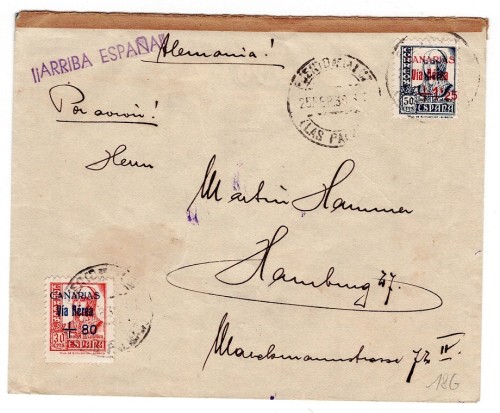 ¡¡ARRIBA ESPAÑA!!
Alemania!
Por avión!
Herrn
Martin Hammer
Hamburg 27.
Marckmannstrasse 72 IV.
CANARIAS
Via Aérea
+ 1'25
50
ESPAÑA
(LAS PAL
CANARIAS
Via Aérea
+ 80
30
ESPAÑA
186